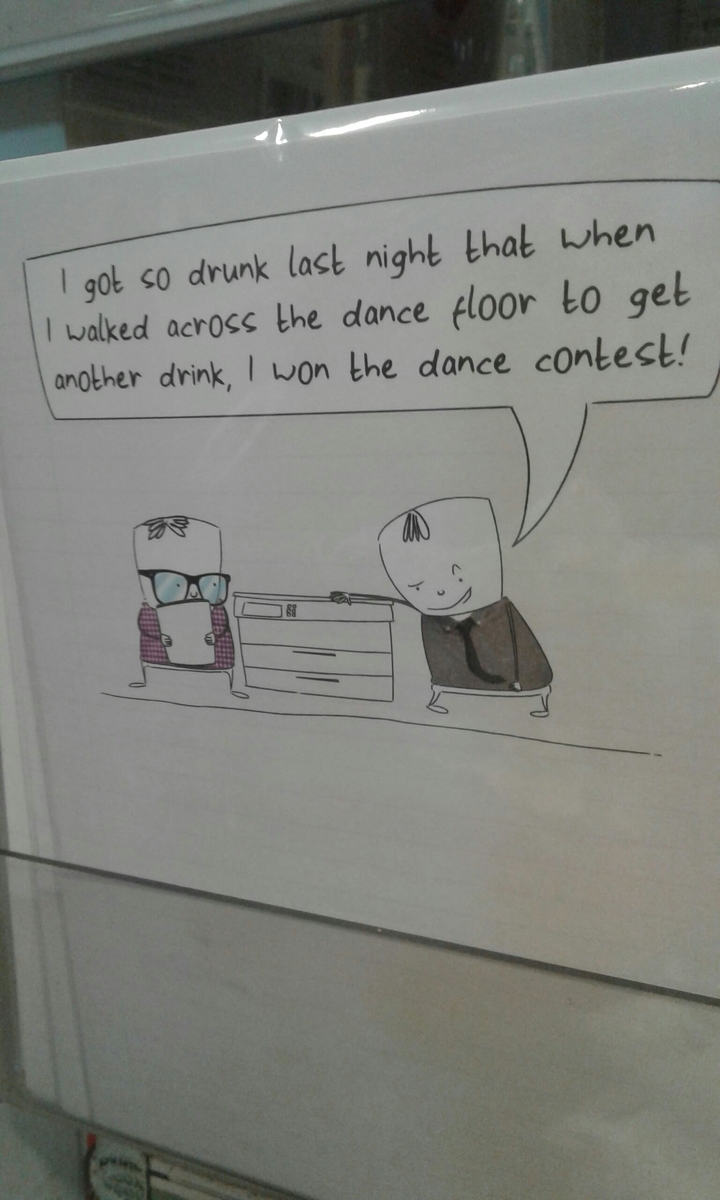 I got so drunk last night that when
I walked across the dance floor to get
another drink, I won the dance contest!